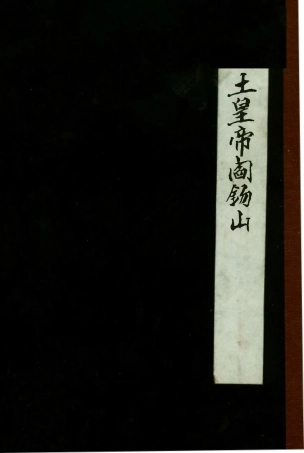 土皇帝阎錫山